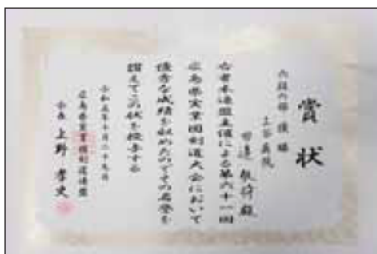 賞状
六段の部 優勝
土谷病院
殿
右者本連盟主催による第六十一回
広島県実業団剣道大会において
優秀な成績を収めたのでその名誉を
讃えてこの状を授与する
令和五年十月二十九日
広島県実業団剣道連盟
会長 上野 孝史